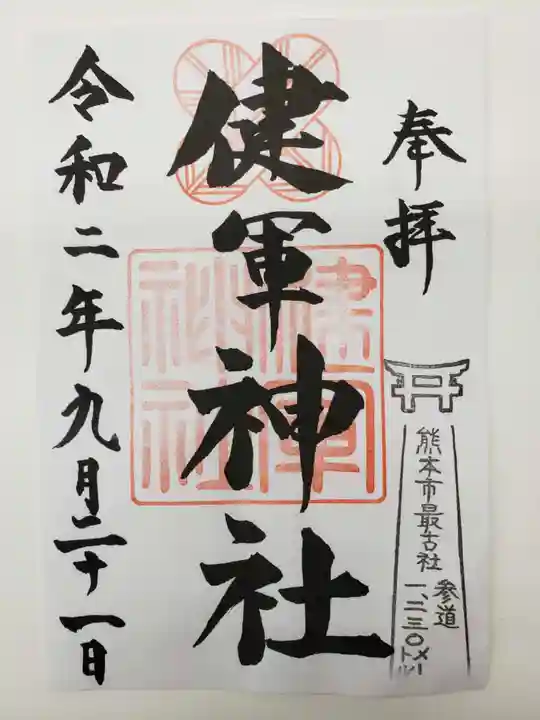 奉拝
熊本市最古社
参道
一、二三〇メートル
健軍神社
健軍神社
令和二年九月二十一日